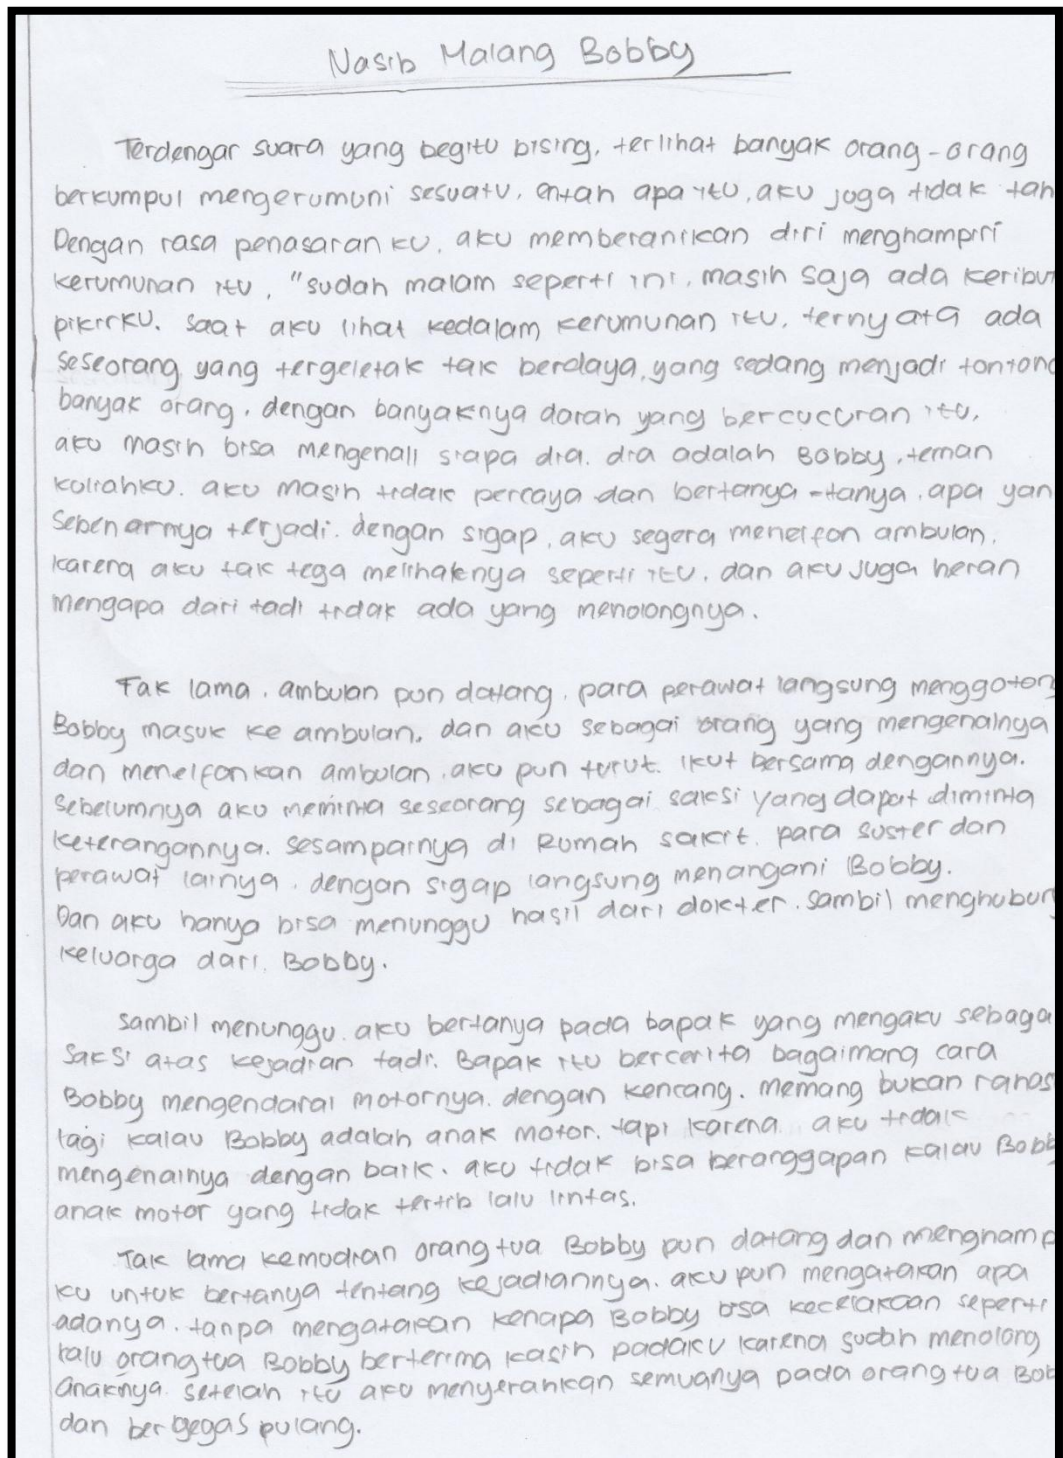 Nasib Malang Bobby
Terdengar suara yang begitu bising, terlihat banyak orang-orang
berkumpul mengerumuni sesuatu, entah apa itu, aku juga tidak tah
Dengan rasa penasaran ku, aku memberanikan diri menghampiri
kerumunan itu, "sudah malam seperti ini, masih saja ada keribut
pikirku. Saat aku lihat kedalam kerumunan itu, ternyata ada
seseorang yang tergeletak tak berdaya, yang sedang menjadi tontona
banyak orang, dengan banyaknya darah yang bercucuran itu,
aku masih bisa mengenali siapa dia. dia adalah Bobby, teman
kuliahku. aku masih tidak percaya dan bertanya-tanya, apa yan
sebenarnya terjadi. dengan sigap, aku segera menelfon ambulan,
karena aku tak tega melihaknya seperti itu, dan aku juga heran
mengapa dari tadi tidak ada yang menolongnya.
Tak lama, ambulan pun datang, para perawat langsung menggoton
Bobby masuk ke ambulan, dan aku sebagai orang yang mengenalnya
dan menelfonkan ambulan, aku pun turut ikut bersama dengannya.
Sebelumnya aku meminta seseorang sebagai saksi yang dapat diminta
keterangannya. sesampainya di Rumah sakit, para suster dan
perawat lainya, dengan sigap langsung menangani Bobby.
Dan aku hanya bisa menunggu hasil dari dokter, sambil menghubun
keluarga dari Bobby.
Sambil menunggu, aku bertanya pada bapak yang mengaku sebaga
saksi atas kejadian tadi. Bapak itu bercerita bagaimana cara
Bobby mengendarai motornya dengan kencang. memang bukan rahas
lagi kalau Bobby adalah anak motor, tapi karena aku tidak
mengenalnya dengan baik, aku tidak bisa beranggapan kalau Bobb
anak motor yang tidak tertib lalu lintas.
Tak lama kemudian orang tua Bobby pun datang dan menghamp
ku untuk bertanya tentang kejadiannya. aku pun mengatakan apa
adanya, tanpa mengatakan kenapa Bobby bisa kecelakaan seperti
lalu orang tua Bobby berterima kasih padaku karena sudah menolong
anaknya. setelah itu aku menyerahkan semuanya pada orang tua Bob
dan bergegas pulang.